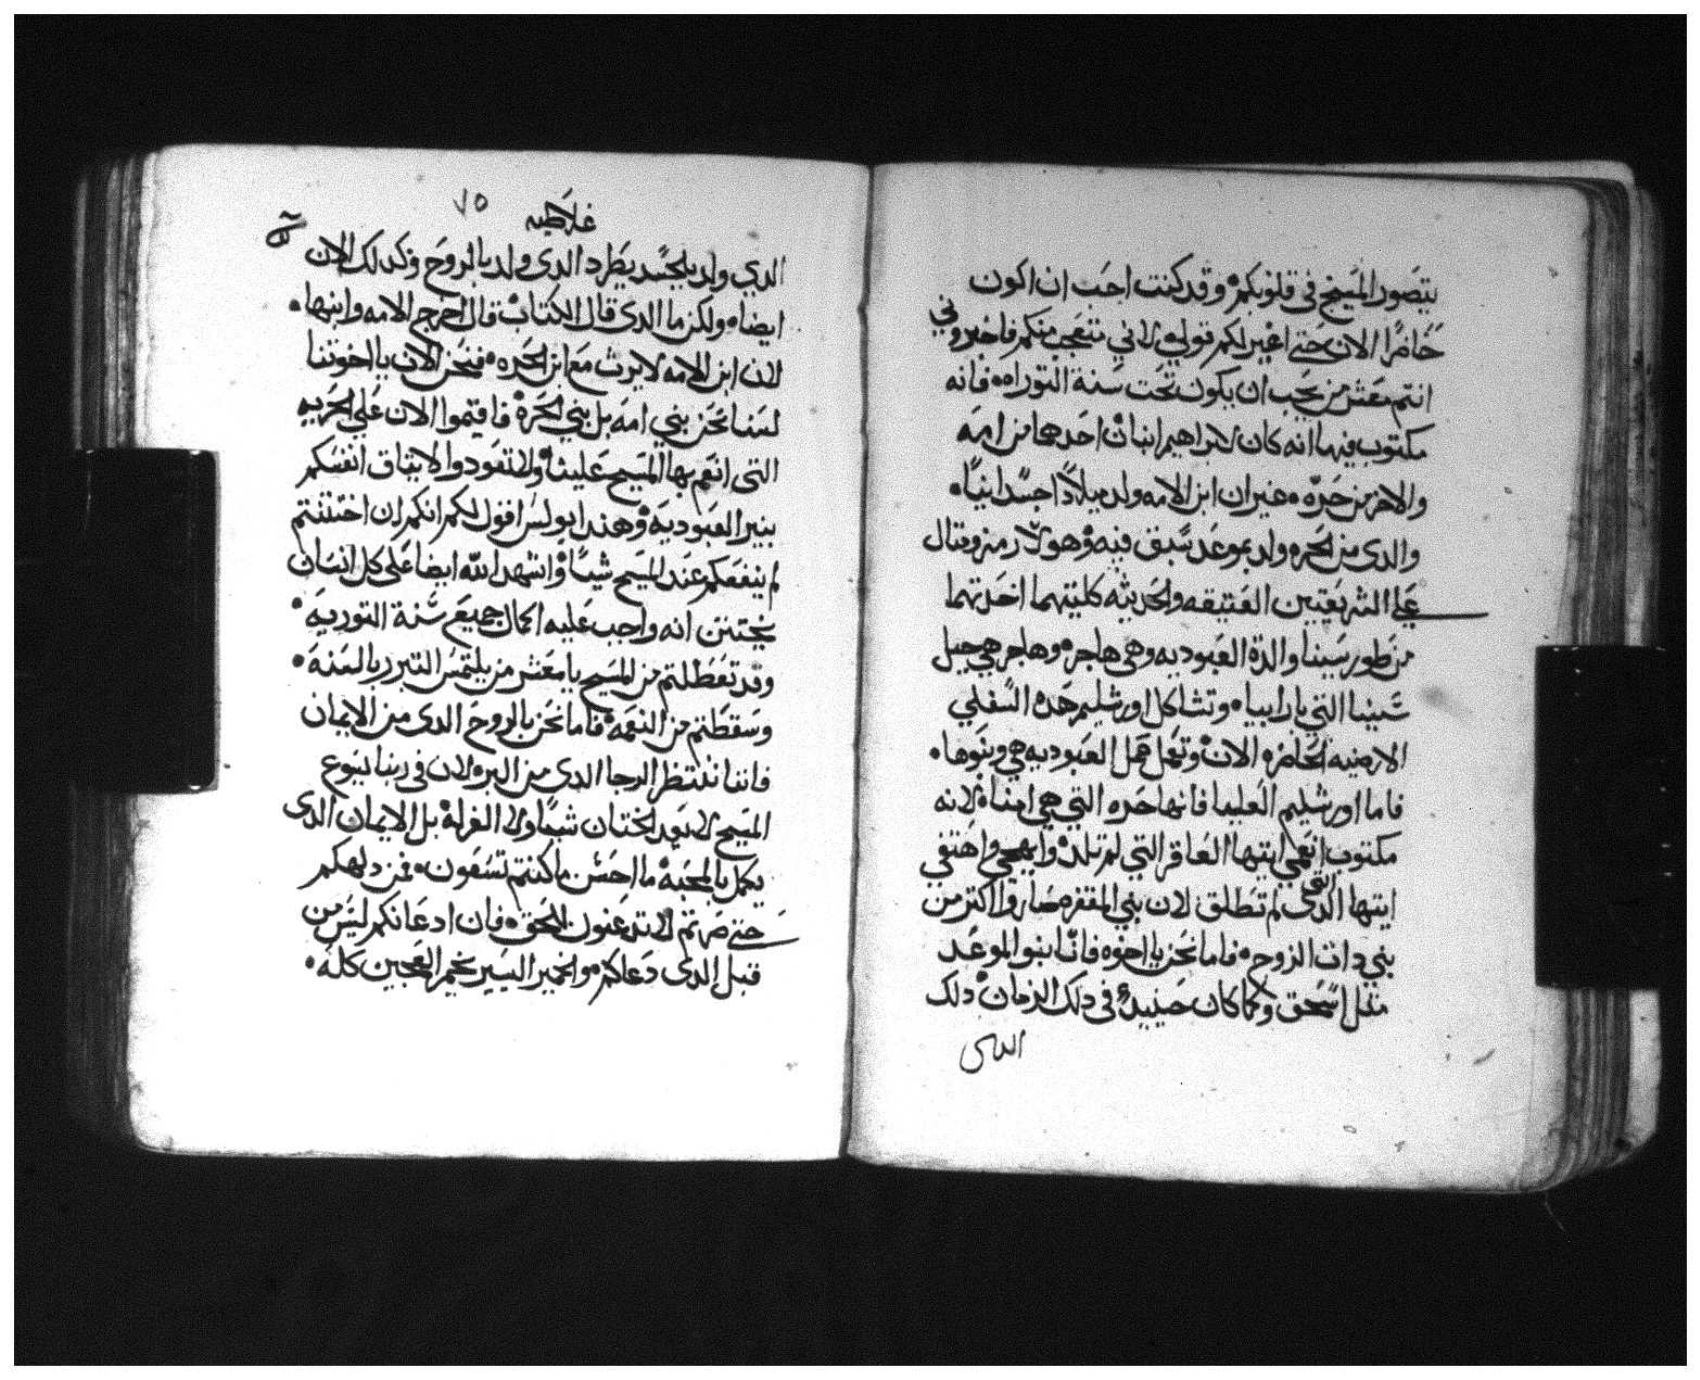 يتصور المسيح في قلوبكم وقد كنت احب ان اكون
حاضرا الان حتي اغير لكم قولي لاني متعجب منكم فاخبروني
انتم معشر من يحب ان يكون تحت سنة التوراه فانه
مكتوب فيها انه كان لابراهيم ابنان احدهما من امه
والاخر من حره غير ان ابن الامه ولد ميلادا جسدانيا
والذي من الحره ولد بموعد سبق فيه وهولا رمز ومثال
علي الشريعتين العتيقه والحديثه كلتيهما احدتهما
من طور سينا والدة العبوديه وهي هاجر وهاجر هي جبل
سينا التي بارابيا وتشاكل اورشليم هذه السفلي
الارضيه الحاضره الان وتعمل عمل العبوديه هي وبنوها
فاما اورشليم العليا فانها حره التي هي امنا لانه
مكتوب انعمي ايتها العاقر التي لم تلد وابهجي واهتفي
ايتها التي لم تطلق لان بني المقفره صاروا اكثر من
بني ذات الزوج فاما نحن يا اخوه فانا بنو الموعد
مثل اسحق وكما كان حينيذ في ذلك الزمان ذلك
الدى
غلاطيه ٧٥
الدي ولد بالجسد يطرد الدى ولد بالروح وكدلك الان
ايضا ولكن ما الدى قال الكتاب قال اخرج الامه وابنها
لان ابن الامه لا يرث مع ابن الحره فنحن الان يا اخوتنا
لسنا نحن بني امه بل بني الحره فاقيموا الان علي الحريه
التى انعم بها المسيح علينا ولا تعودوا لايثاق انفسكم
بنير العبوديه وهندا بولس اقول لكم انكم ان اختتنتم
لم ينفعكم عند المسيح شيا واشهد الله ايضا علي كل انسان
يختتن انه واجب عليه اكمال جميع سنة التوريه
وقد تعطلتم من المسيح يا معشر من يلتمس التبرر بالسنه
وسقطتم من النعمه فاما نحن بالروح الدى من الايمان
فاننا ننتظر الرجا الدى من البر لان في ربنا يسوع
المسيح لا يعد الختان شيا ولا الغرله بل الايمان الدى
يكمل بالمحبه ما احسن ما كنتم تسعون فمن دلهكم
حتي صرتم لا تدعنون للحق فان ادعانكم ليس من
قبل الدى دعاكم والخمير اليسير يخمر العجين كله